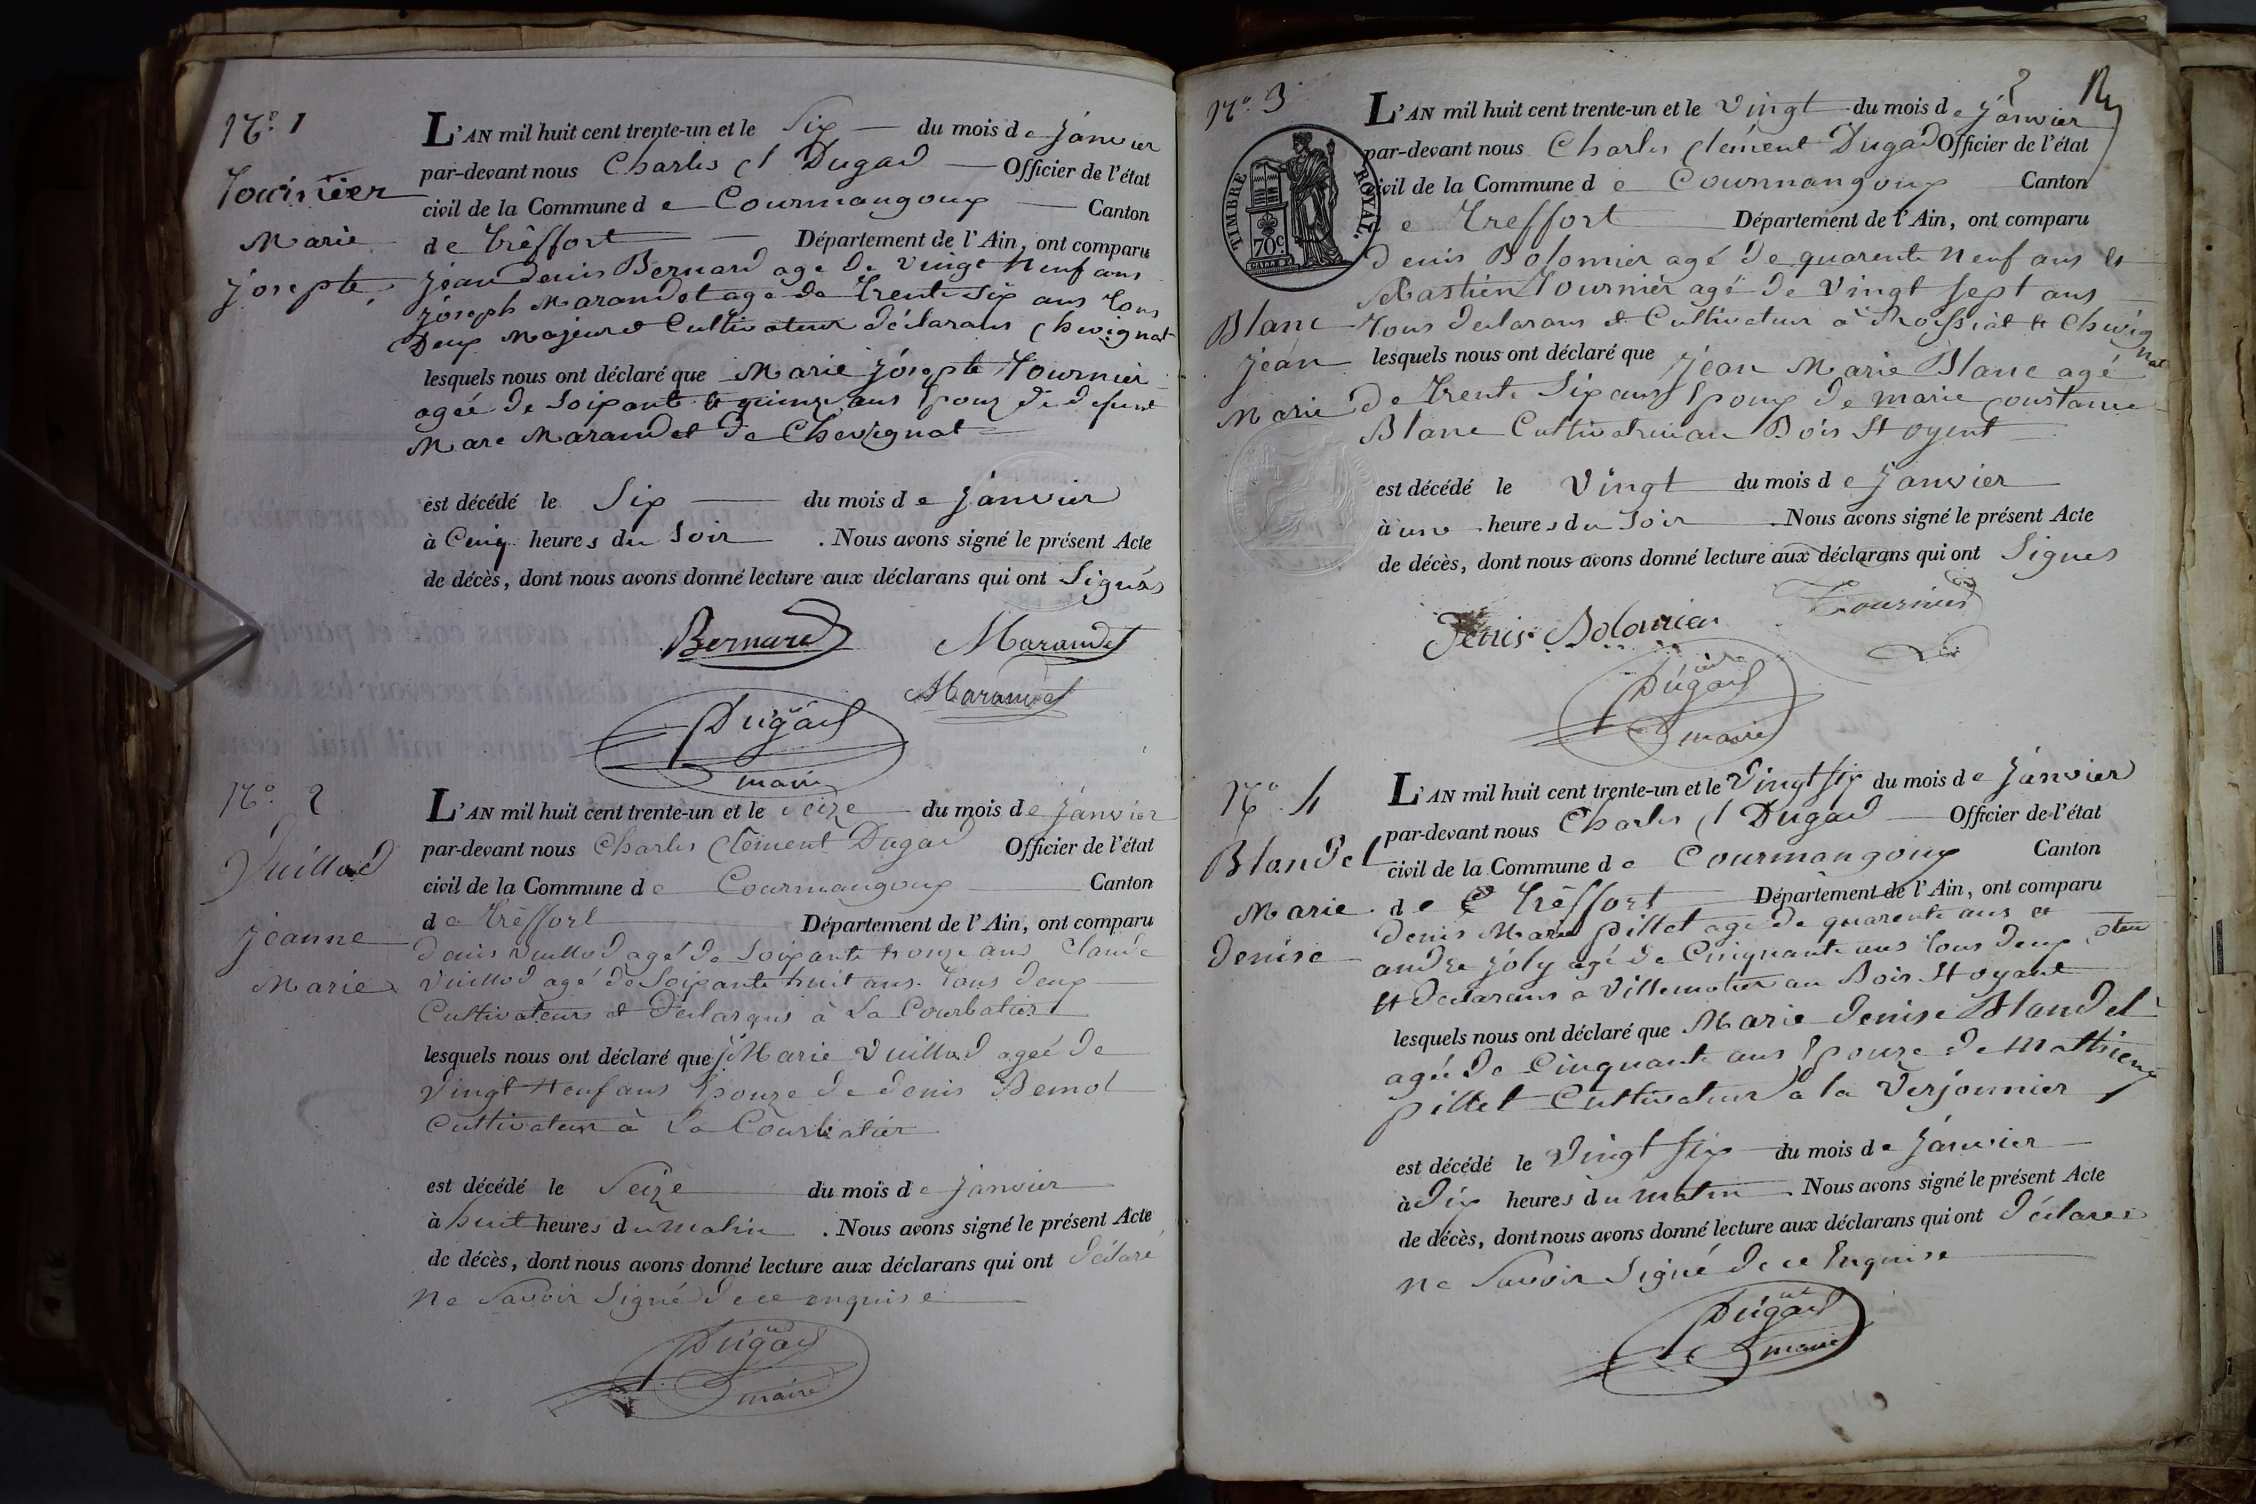 N.o 1
Tournier
Marie
Josephte
L'AN mil huit cent trente-un et le Six du mois de Janvier
par-devant nous Charles Cl Dugad Officier de l'état
civil de la Commune de Courmangoux Canton
de Trêffort Département de l'Ain, ont comparu
jean denis Bernard agé De vingt Neuf ans
joseph Marandet agé de trente Six ans tous
Deux Majeurs et Cultivateur déclarans Chevignat
lesquels nous ont déclaré que Marie josephte Tournier
ageé De Soixante et quinze ans Epouze de defunt
Marc Marandet De Chevignat
est décédé le Six du mois de Janvier
à Cinq heures du Soir . Nous avons signé le présent Acte
de décès, dont nous avons donné lecture aux déclarans qui ont Signés
Bernard Marandet
Marandet
Dugad
maire
N.o 2
Vuillod
jeanne
Marie
L'AN mil huit cent trente-un et le Seize du mois de Janvier
par-devant nous Charles Clément Dugad Officier de l'état
civil de la Commune de Courmangoux Canton
de Trêffort Département de l'Ain, ont comparu
denis Vuillod agé de Soixante honze ans Claude
Vuillod agé de Soixante huit ans. tous deux
Cultivateurs et Déclarans à La Courbatier
lesquels nous ont déclaré que j Marie Vuillod ageé de
Vingt Neuf ans Epouze de denis Bemol
Cultivateur à La Courbatier
est décédé le Seize du mois de Janvier
à huit heures du Matin . Nous avons signé le présent Acte
de décès, dont nous avons donné lecture aux déclarans qui ont Déclaré
Ne Savoir Signé De ce enquise
Dugad
maire
N.o 3
2
TIMBRE ROYAL.
70c
Blanc
Jean
Marie
L'AN mil huit cent trente-un et le Vingt du mois de Janvier
par-devant nous Charles Clément Dugad Officier de l'état
civil de la Commune de Courmangoux Canton
e Treffort Département de l'Ain, ont comparu
Denis Bolomier agé De quarente Neuf ans et
Sebastien Tournier agé De Vingt Sept ans
tous declarans et Cultivateur à Roissiat et Chevignat
lesquels nous ont déclaré que Jean Marie Blanc agé
de trente Six ans Epoux De marie Constance
Blanc Cultivateur au Bois St oyent
est décédé le Vingt du mois de Janvier
à une heures du Soir . Nous avons signé le présent Acte
de décès, dont nous avons donné lecture aux déclarans qui ont Signés
Denis Bolomier Tournier
Dugad
maire
N.o 4
Blandel
Marie
Denise
L'AN mil huit cent trente-un et le Vingt Six du mois de Janvier
par-devant nous Charles Cl Dugad Officier de l'état
civil de la Commune de Courmangoux Canton
de Trêffort Département de l'Ain, ont comparu
Denis Marie pillet agé de quarente ans et
andre joly agé De Cinquante ans tous deux
et declarans a Villemotier au Bois St oyant
lesquels nous ont déclaré que Marie Denise Blandel
ageé De Cinquante ans Epouze De Mathieux
pillet Cultivateur à la Verjonnier
est décédé le Vingt Six du mois de Janvier
à Dix heures du Matin . Nous avons signé le présent Acte
de décès, dont nous avons donné lecture aux déclarans qui ont Déclarés
Ne Savoir Signé De ce Enquise
Dugad
maire